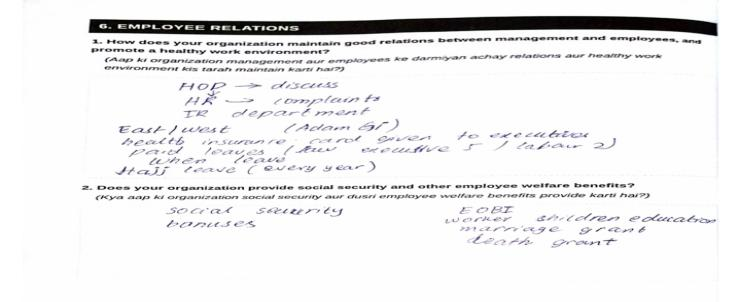 6. EMPLOYEE RELATIONS
1. How does your organization maintain good relations between management and employees, and
promote a healthy work environment?
(Aap ki organization management aur employees ke darmiyan achay relations aur healthy work
environment kis tarah maintain karti hai?)
HOD → discuss
HR → complaints
IR department
East / West (Adam
health insurance card given to executives
paid leaves ( executive 5 / labour 2)
when leave
Hajj leave (every year)
2. Does your organization provide social security and other employee welfare benefits?
(Kya aap ki organization social security aur dusri employee welfare benefits provide karti hai?)
social security EOBI
bonuses worker children education
marriage grant
death grant